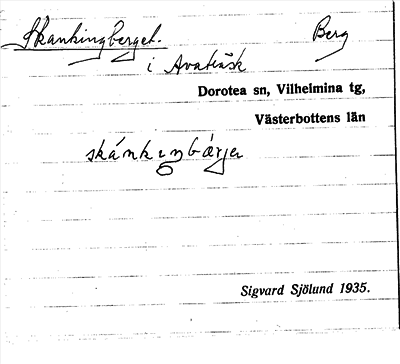 Skankingberget. Berg
i Avaträsk
Dorotea sn, Vilhelmina tg,
Västerbottens län
skánkıŋbárjə
Sigvard Sjölund 1935.